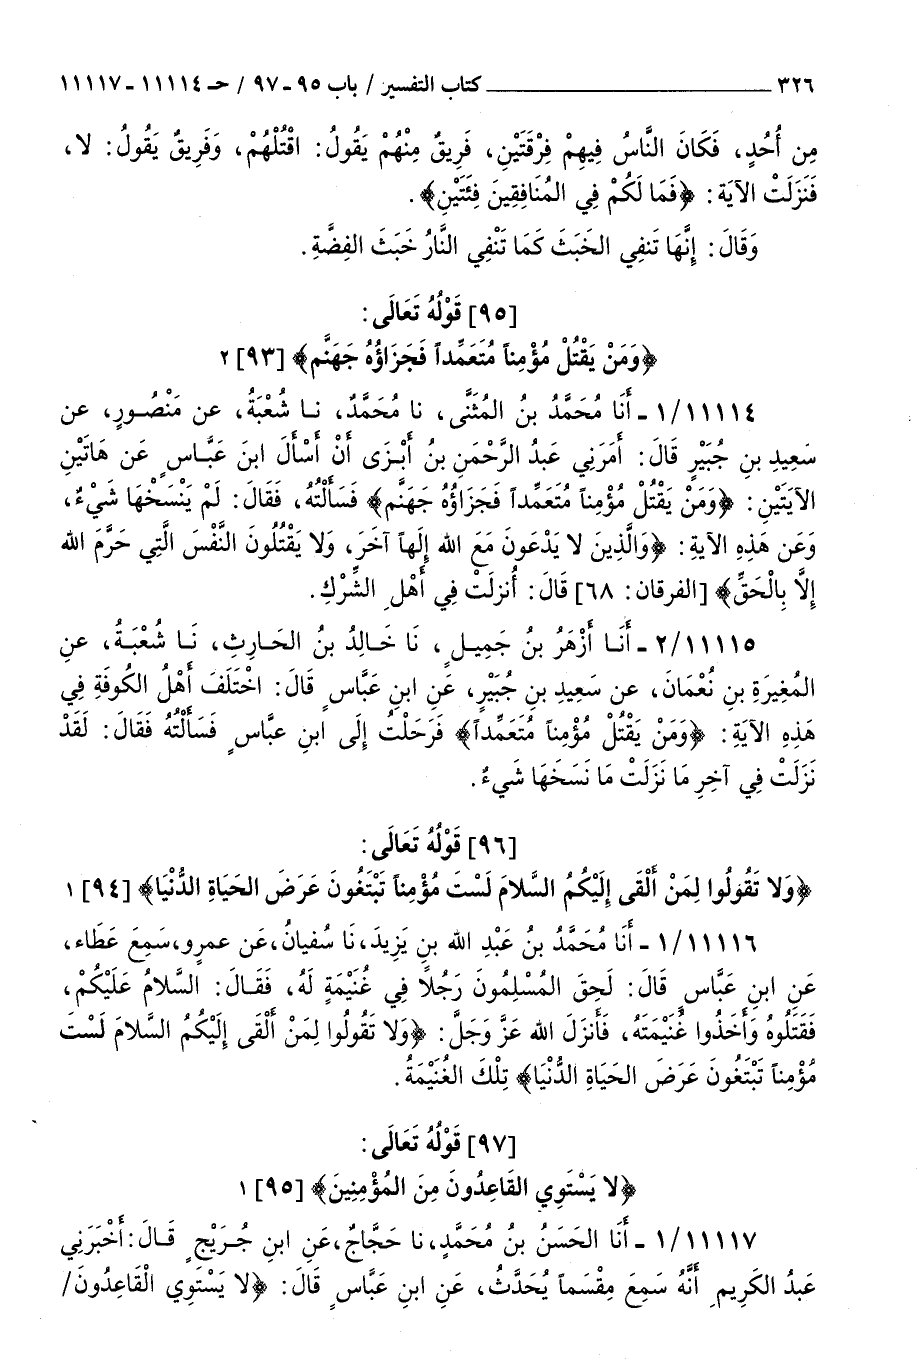 ٣٢٦ ــــــــــــــــــــــــــــــــــــــــ كتاب التفسير / باب ٩٥ ـ ٩٧ / حـ ١١١١٤ ـ ١١١١٧
مِن أُحُدٍ، فَكَانَ النَّاسُ فِيهِمْ فِرْقَتَيْنِ، فَرِيقٌ مِنْهُمْ يَقُولُ: اقْتُلْهُمْ، وَفَرِيقٌ يَقُولُ: لا،
فَنَزَلَتْ الآيَة: ﴿فَمَا لَكُمْ فِي المُنَافِقِينَ فِئَتَيْنِ﴾.
وَقَالَ: إِنَّهَا تَنفِي الخَبَثَ كَمَا تَنْفِي النَّارُ خَبَثَ الفِضَّةِ.
[٩٥] قَوْلُهُ تَعَالَى:
﴿وَمَنْ يَقْتُلْ مُؤْمِناً مُتَعَمِّداً فَجَزَاؤُهُ جَهَنَّم﴾ [٩٣] ٢
١/١١١١٤ ـ أَنَا مُحَمَّدُ بنُ المُثَنَّى، نا مُحَمَّدٌ، نـا شُعْبَةُ، عن مَنْصُـورٍ، عن
سَعِيدِ بنِ جُبَيْرٍ قَالَ: أَمَرَنِي عَبدُ الرَّحْمَنِ بنُ أَبْـزَى أَنْ أَسْأَلَ ابنَ عَبَّـاسٍ عَن هَاتَيْنِ
الآيَتَيْنِ: ﴿وَمَنْ يَقْتُلْ مُؤْمِناً مُتَعَمِّداً فَجَزَاؤُهُ جَهَنَّم﴾ فَسَأَلْتُهُ، فَقَالَ: لَمْ يَنْسَخْهَا شَيْءٌ،
وَعَن هَذِهِ الآيَةِ: ﴿وَالَّذِينَ لا يَدْعُونَ مَعَ الله إِلَهاً آخَرَ، وَلا يَقْتُلُونَ النَّفْسَ الَّتِي حَرَّمَ الله
إِلَّا بِالْحَقِّ﴾ [الفرقان: ٦٨] قَالَ: أُنزلَتْ فِي أَهْلِ الشِّرْكِ.
٢/١١١١٥ ـ أَنَـا أَزْهَرُ بنُ جَمِيـلٍ، نَا خَـالِدُ بنُ الحَـارِثِ، نَـا شُعْبَـةُ، عنِ
المُغِيرَةِ بنِ نُعْمَانَ، عن سَعِيدِ بنِ جُبَيْرٍ، عَنِ ابنِ عَبَّاسٍ قَالَ: اخْتَلَفَ أَهْلُ الكُوفَةِ فِي
هَذِهِ الآيَةِ: ﴿وَمَنْ يَقْتُلْ مُؤْمِناً مُتَعَمِّداً﴾ فَرَحَلْتُ إِلَى ابنِ عبَّاسٍ فَسَأَلْتُهُ فَقَالَ: لَقَدْ
نَزَلَتْ فِي آخِرِ مَا نَزَلَتْ مَا نَسَخَهَا شَيءٌ.
[٩٦] قَوْلُهُ تَعَالَى:
﴿وَلا تَقُولُوا لِمَنْ أَلْقَى إِلَيْكُمُ السَّلامَ لَسْتَ مُؤْمِناً تَبْتَغُونَ عَرَضَ الحَيَاةِ الدُّنْيَا﴾ [٩٤] ١
١/١١١١٦ ـ أَنَا مُحَمَّدُ بنُ عَبْدِ الله بنِ يَزِيدَ، نَا سُفيانُ، عَن عمرٍو، سَمِعَ عَطَاء،
عَنِ ابنِ عَبَّاسٍ قَالَ: لَحِقَ المُسْلِمُونَ رَجُلاً فِي غُنَيْمَةٍ لَهُ، فَقَـالَ: السَّلامُ عَلَيْكُمْ،
فَقَتَلُوهُ وَأَخَذُوا غُنَيْمَتَهُ، فَأَنزَلَ الله عَزَّ وَجَلَّ: ﴿وَلا تَقُولُوا لِمَنْ أَلْقَى إِلَيْكُمُ السَّلامَ لَسْتَ
مُؤْمِناً تَبْتَغُونَ عَرَضَ الحَيَاةِ الدُّنْيَا﴾ تِلْكَ الغُنَيْمَةُ.
[٩٧] قَوْلُهُ تَعَالَى:
﴿لا يَسْتَوِي القَاعِدُونَ مِنَ المُؤْمِنِينَ﴾ [٩٥] ١
١/١١١١٧ ـ أَنَا الحَسَنُ بنُ مُحَمَّدٍ، نا حَجَّاجٌ، عَنِ ابنِ جُـرَيْجٍ قَـالَ: أَخْبَرَنِي
عَبدُ الكَرِيمِ أَنَّهُ سَمِعَ مِقْسَماً يُحَدِّثُ، عَنِ ابنِ عَبَّاسٍ قَالَ: ﴿لا يَسْتَوِي الْقَاعِدُونَ/